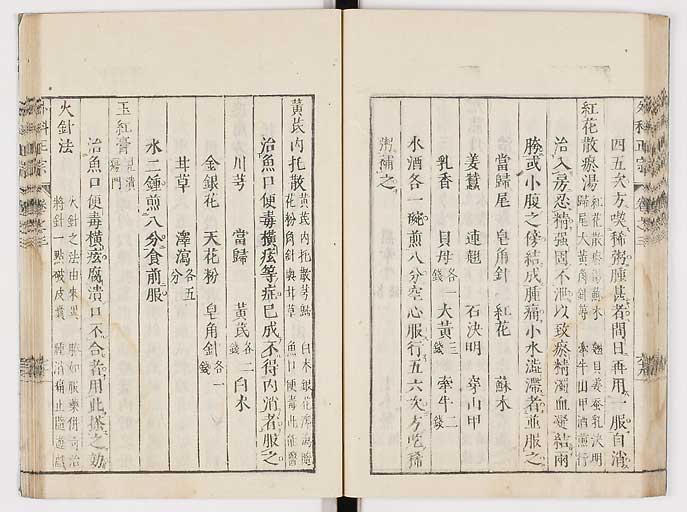 外科正宗
四五次方喫稀粥腫甚者間日再用一服自消
紅花散瘀湯
紅花散瘀湯蘇木
歸尾大黄角針等
翹貝姜蚕乳決明
牽牛山甲酒煎行
治入房忍精強固不泄以致瘀精濁血凝結兩
胯或小腹之傍結成腫痛小水澁滯者並服之
當歸尾 皂角針 紅花 蘇木
姜蠶 連翹 石決明 穿山甲
乳香 貝母各一錢 大黄三錢 牽牛二錢
水酒各一碗煎八分空心服行五六次方吃稀
粥補之
黄芪内托散
黄芪内托散芎歸
花粉角針與甘草
白木銀花澤瀉隨
魚口便毒此能醫
治魚口便毒橫痃等症已成不得内消者服之
川芎 當歸 黄芪各二錢 白木
金銀花 天花粉 皂角針各一錢
甘草 澤瀉各五分
水二鍾煎八分食前服
玉紅膏見潰瘍門
治魚口便毒橫痃腐潰口不合者用此搽之効
火針法
火針之法由來異
勝如服藥併奇治
將針一點破皮囊
腫消痛止隨遊戲
外科正宗